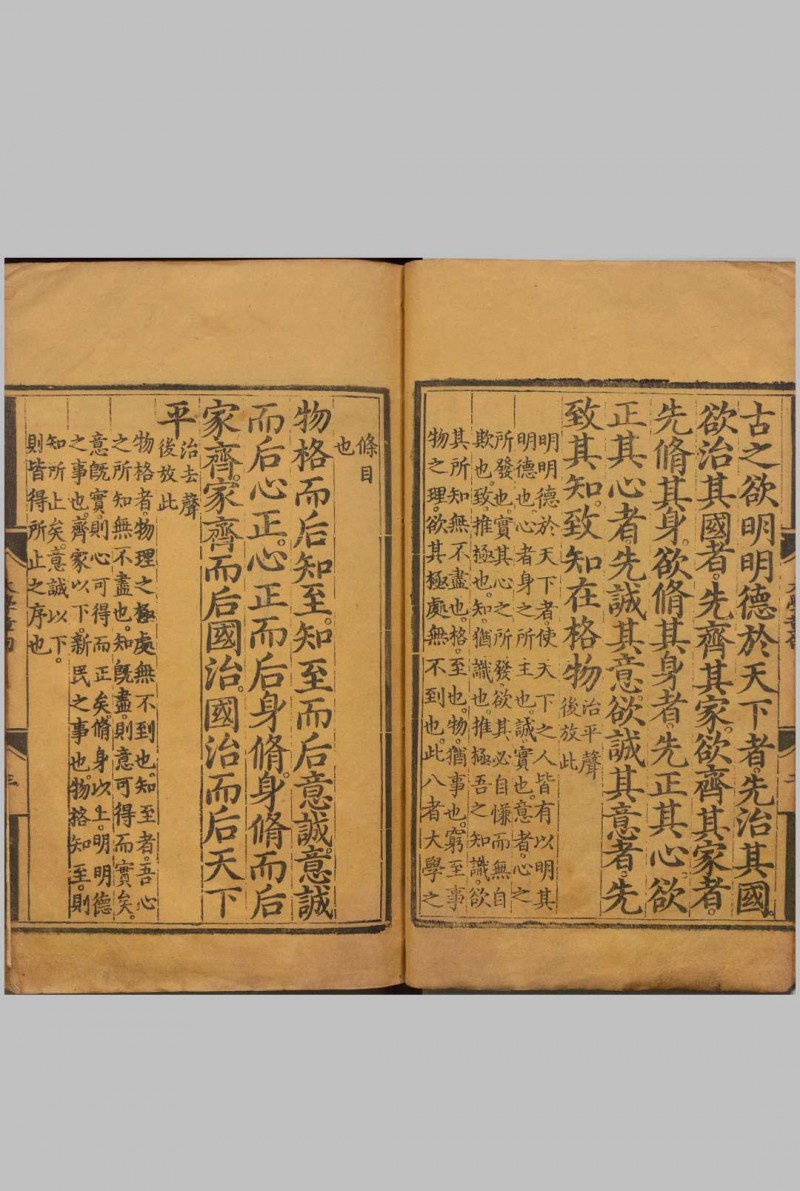 古之欲明明德於天下者。先治其國。
欲治其國者。先齊其家。欲齊其家者。
先脩其身。欲脩其身者。先正其心。欲
正其心者。先誠其意。欲誠其意者。先
致其知。致知在格物
治平聲
後放此
明明德於天下者使天下之人皆有以明其
明德也心者身之所主也。誠實也。意者。心之
所發也。實其心之所發欲其必自慊而無自
欺也。致。推極也。知。猶識也。推極吾之知識。欲
其所知無不盡也。格。至也。物。猶事也。窮至事
物之理。欲其極處無不到也。此八者大學之
條目
也
物格而后知至。知至而后意誠。意誠
而后心正。心正而后身脩。身脩而后
家齊。家齊而后國治。國治而后天下
平
治去聲
後放此
物格者。物理之極處無不到也。知至者。吾心
之所知無不盡也。知旣盡。則意可得而實矣。
意旣實。則心可得而正矣。脩身以上。明明德
之事也。齊家以下。新民之事也。物格知至。則
知所止矣。意誠以下。
則皆得所止之序也